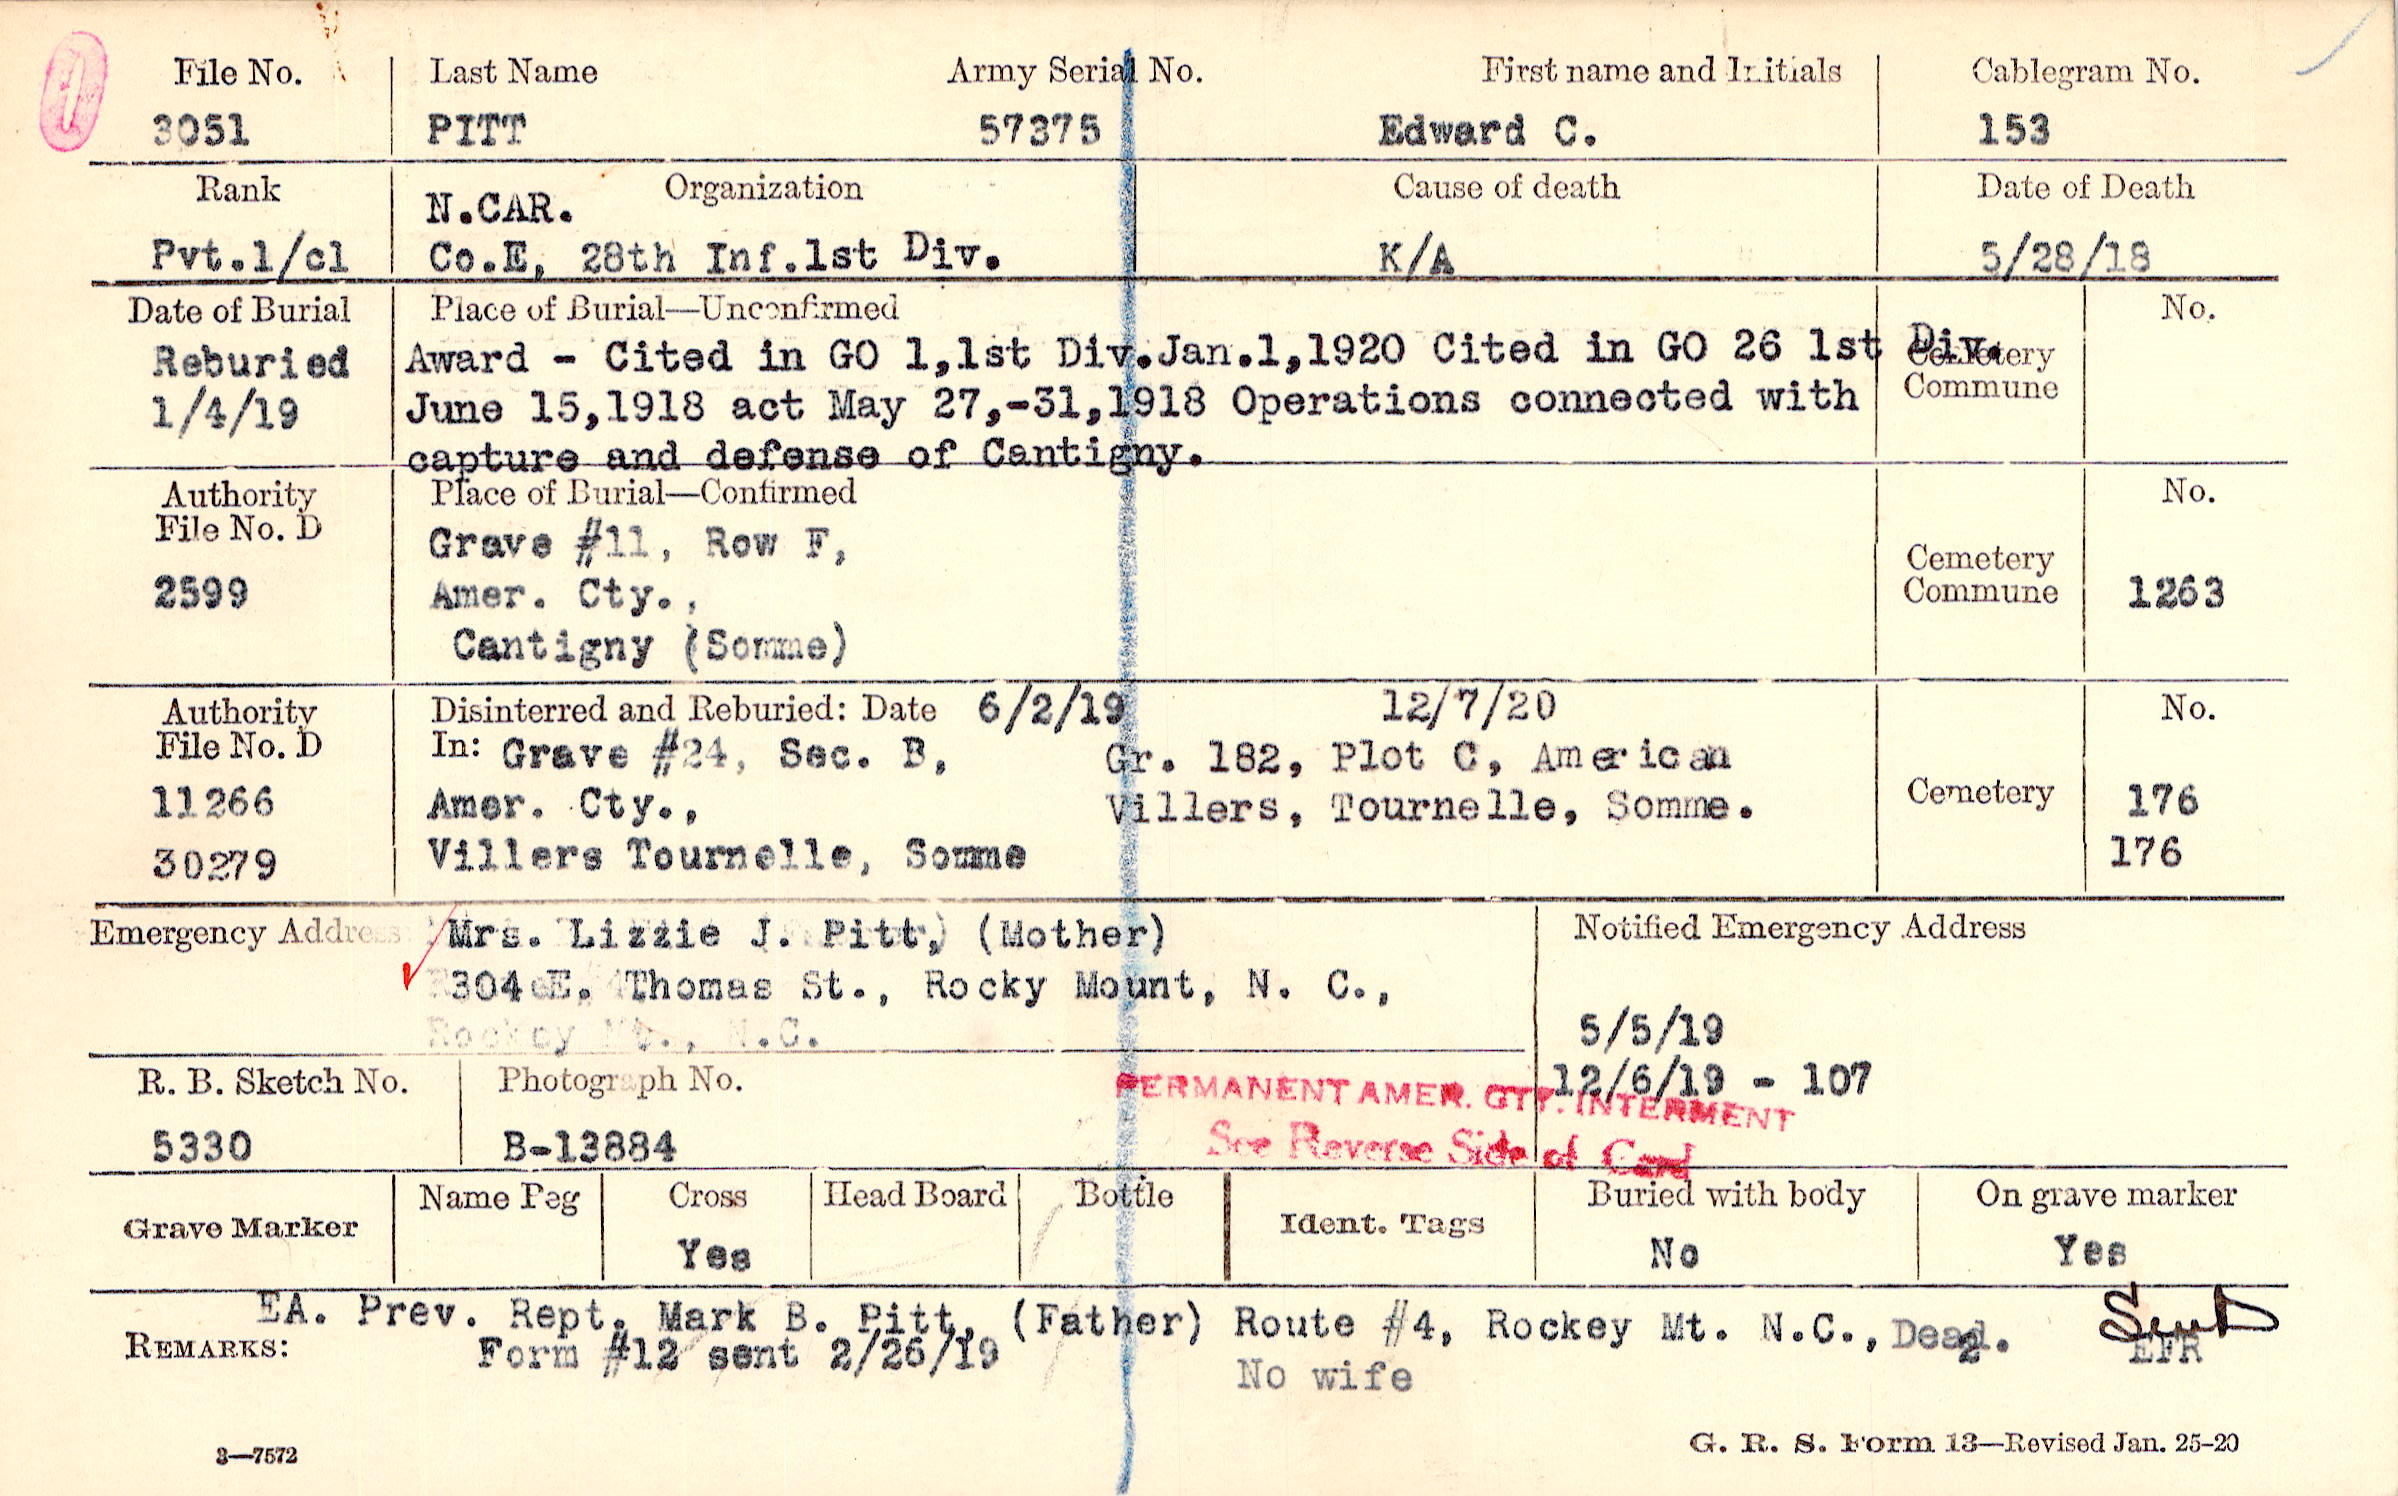 File No. Last Name Army Serial No. First name and Initials Cablegram No.
3051 PITT 57375 Edward C. 153
Rank Organization Cause of death Date of Death
N.CAR.
Pvt.1/cl Co.E, 28th Inf.1st Div. K/A 5/28/18
Date of Burial Place of Burial—Unconfirmed No.
Reburied Award - Cited in GO 1,1st Div.Jan.1,1920 Cited in GO 26 1st Div.
Cemetery
Commune
1/4/19 June 15,1918 act May 27,-31,1918 Operations connected with
capture and defense of Cantigny.
Authority Place of Burial—Confirmed No.
File No. D Grave #11, Row F,
Cemetery
2599 Amer. Cty., Commune 1263
Cantigny (Somme)
Authority Disinterred and Reburied: Date 6/2/19 12/7/20 No.
File No. D In: Grave #24, Sec. B, Gr. 182, Plot C, American
11266 Amer. Cty., Villers, Tournelle, Somme. Cemetery 176
30279 Villers Tournelle, Somme 176
Emergency Address Mrs. Lizzie J. Pitt, (Mother) Notified Emergency Address
304 E. Thomas St., Rocky Mount, N. C.,
Rockey Mt., N.C. 5/5/19
12/6/19 - 107
R. B. Sketch No. Photograph No. PERMANENT AMER. CTY. INTERMENT
5330 B-13884 See Reverse Side of Card
Grave Marker Name Peg Cross Head Board Bottle Ident. Tags Buried with body On grave marker
Yes No Yes
EA. Prev. Rept. Mark B. Pitt, (Father) Route #4, Rockey Mt. N.C., Dead. Sent
REMARKS: Form #12 sent 2/26/19 2 EFR
No wife
3—7572 G. R. S. Form 13—Revised Jan. 25-20